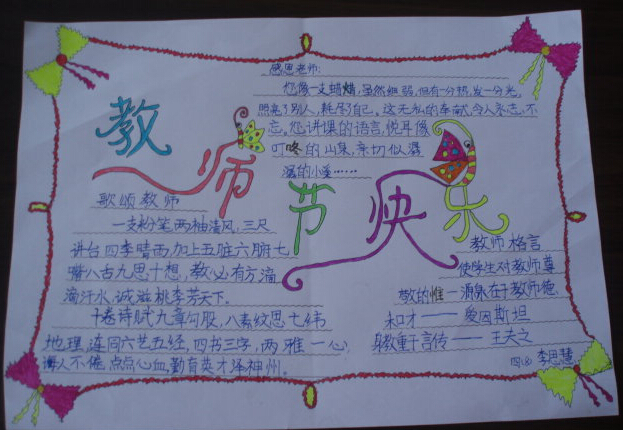 教师节快乐
感恩老师:
您像一支蜡烛,虽然细弱,但有一分热,发一分光,
照亮了别人,耗尽了自己。这无私的奉献,令人永志不
忘。您讲课的语言,悦耳像
叮咚的山泉,亲切似潺
潺的小溪……
歌颂教师
一支粉笔两袖清风,三尺
讲台四季晴雨,加上五脏六腑七
嘴八舌九思十想,教必有方滴
滴汗水,诚滋桃李芳天下。
十卷诗赋九章勾股,八索纹思七纬
地理,连同六艺五经,四书三字,两雅一心,
诲人不倦,点点心血,勤育英才泽神州。
教师格言
使学生对教师尊
敬的惟一源泉在于教师德
和才——爱因斯坦
身教重于言传——王夫之